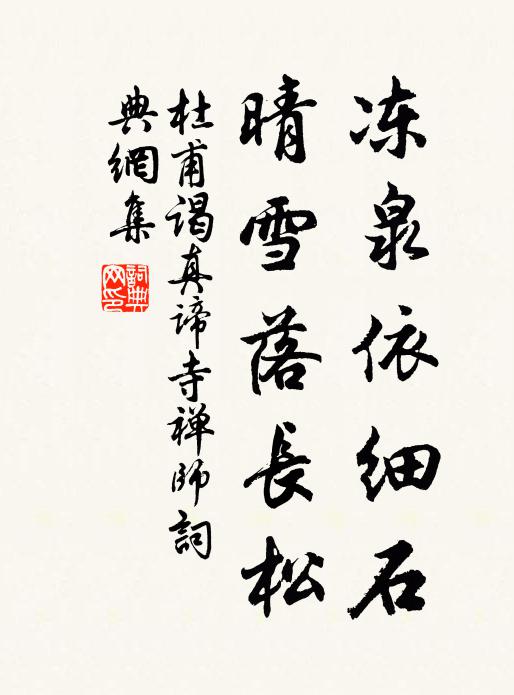 冻泉依细石
晴雪落長松
杜甫谒真谛寺禅师詞
典網集
詞典网印